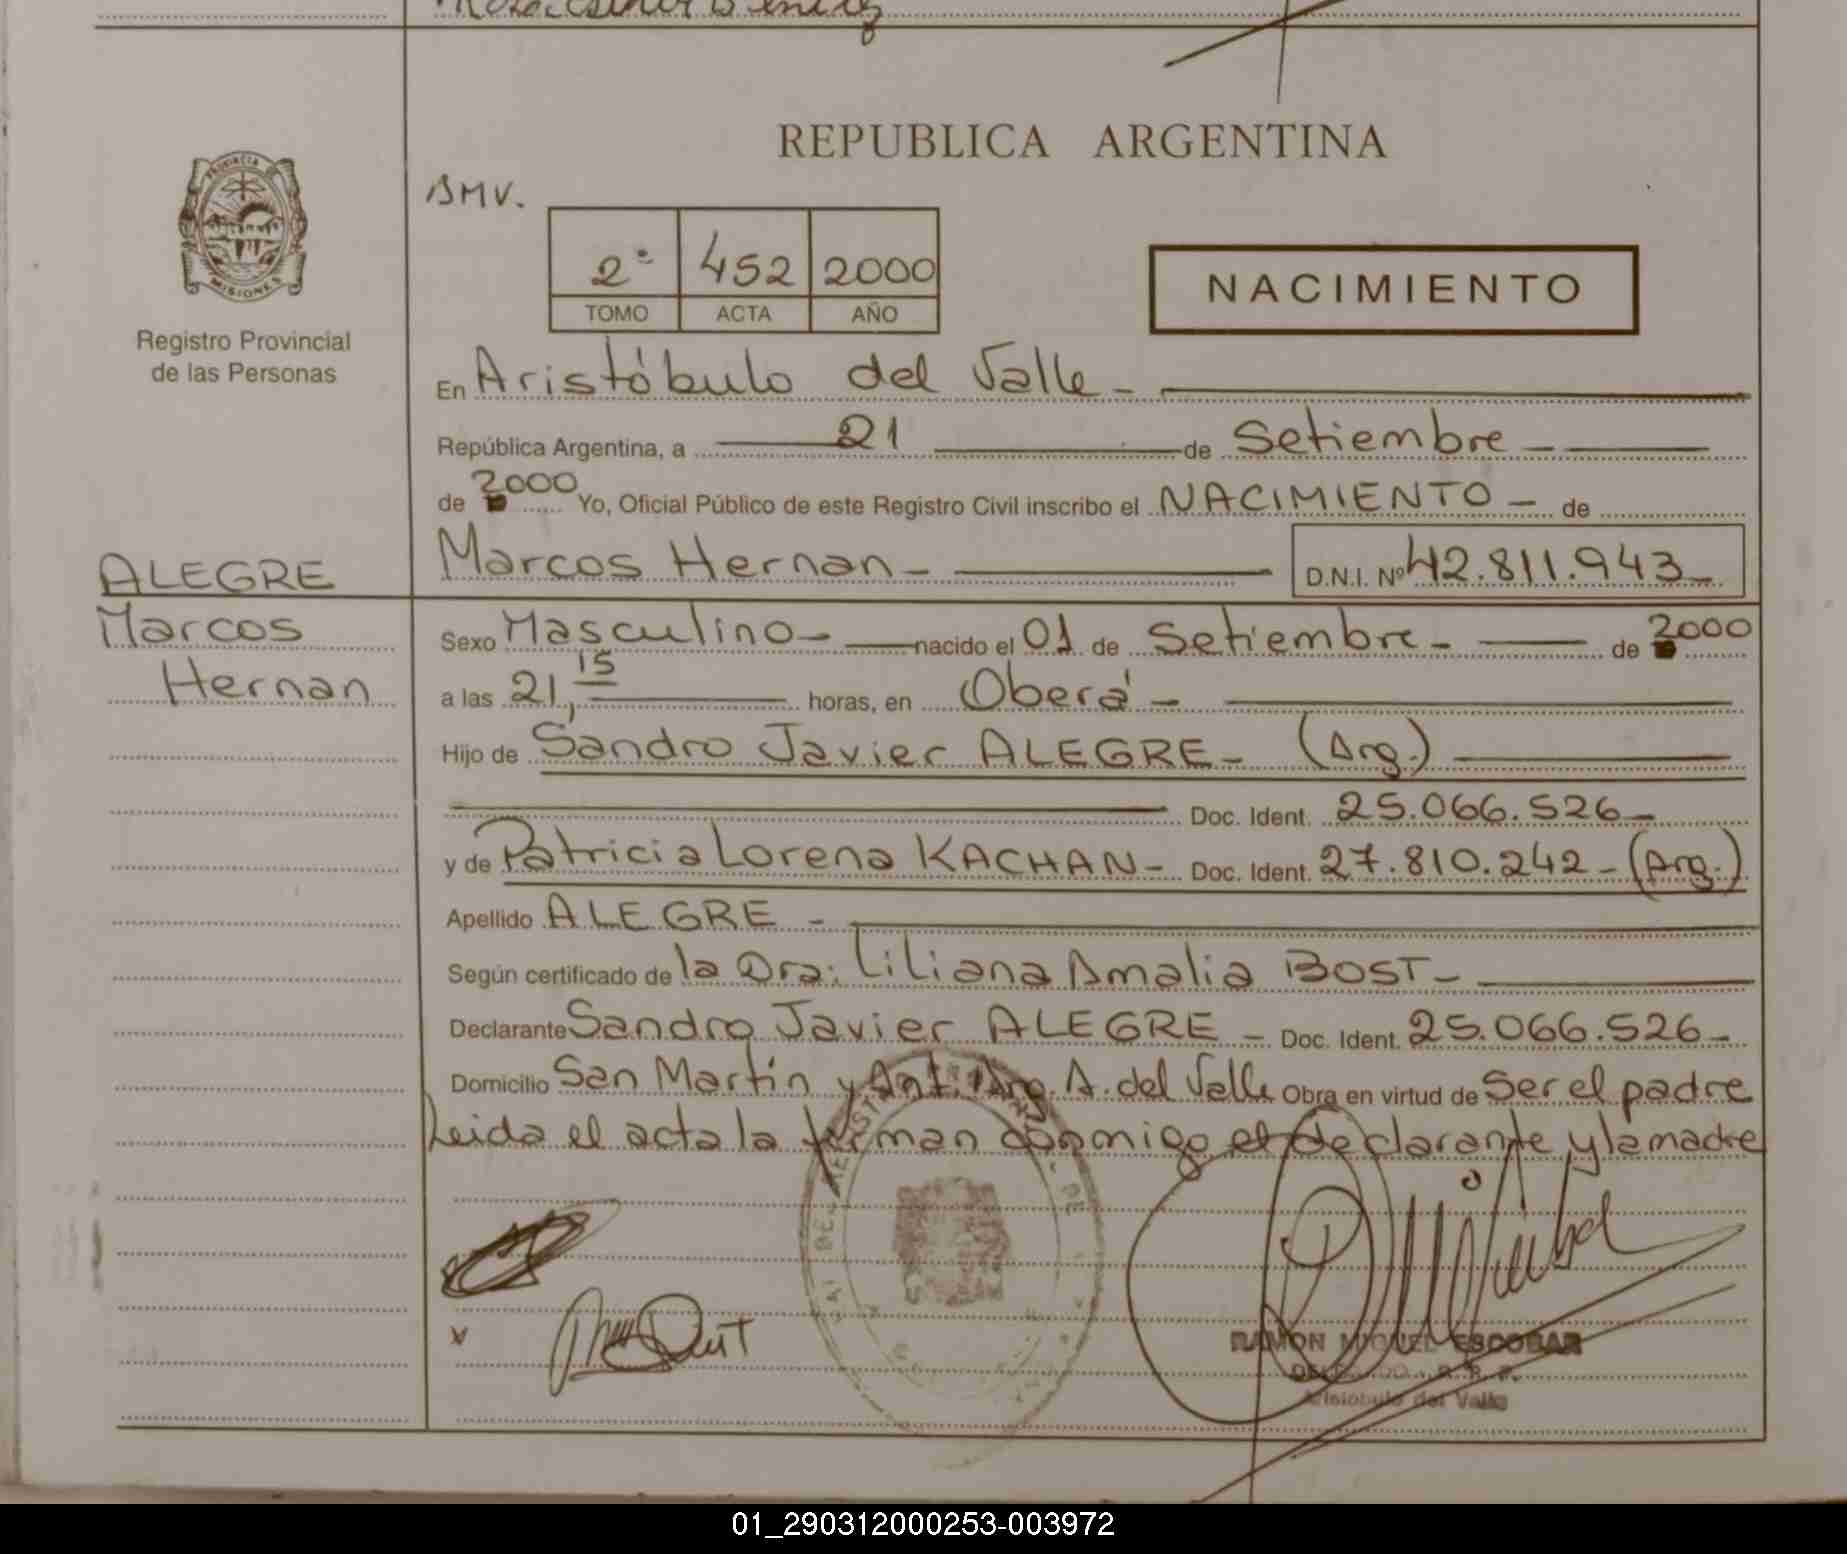 REPUBLICA ARGENTINA
PROVINCIA DE
MISIONES
Registro Provincial
de las Personas
BMV.
2º 452 2000
TOMO ACTA AÑO
NACIMIENTO
En Aristóbulo del Valle -
República Argentina, a 21 de Setiembre -
de 2000 Yo, Oficial Público de este Registro Civil inscribo el NACIMIENTO - de
ALEGRE
Marcos Hernan - D.N.I. Nº 42.811.943 -
Marcos
Hernan
Sexo Masculino - nacido el 01 de Setiembre - de 2000
a las 21,15 horas, en Oberá -
Hijo de Sandro Javier ALEGRE - (Arg.)
Doc. Ident. 25.066.526 -
y de Patricia Lorena KACHAN - Doc. Ident. 27.810.242 - (Arg.)
Apellido ALEGRE -
Según certificado de la Dra: Liliana Amalia BOST -
Declarante Sandro Javier ALEGRE - Doc. Ident. 25.066.526 -
Domicilio San Martín y Ant. Arg. A. del Valle Obra en virtud de Ser el padre
Leida el acta la firman conmigo el declarante y la madre
RAMON MIGUEL ESCOBAR
Aristobulo del Valle
01_290312000253-003972